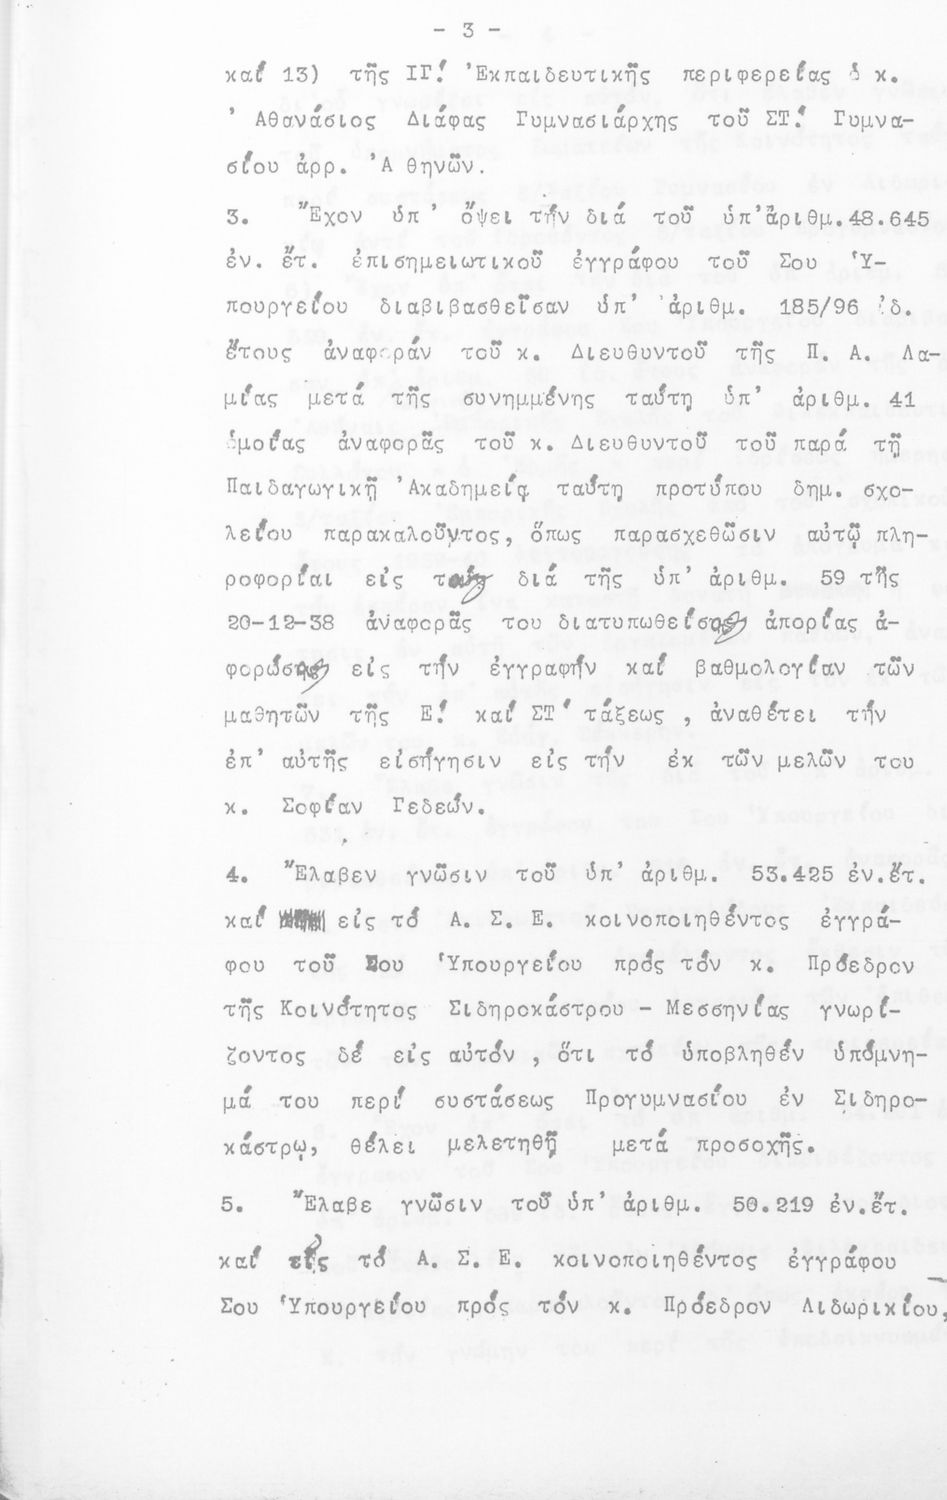 - 3 -
καί 13) τῆς ΙΓ! Ἐκπαιδευτικῆς περιφερείας ὁ κ.
Ἀθανάσιος Διάφας Γυμνασιάρχης τοῦ ΣΤ! Γυμνα-
σίου ἀρρ. Ἀθηνῶν.
3. Ἔχον ὑπ' ὄψει τήν διά τοῦ ὑπ'ἀριθμ.48.645
ἐν. ἔτ. ἐπισημειωτικοῦ ἐγγράφου τοῦ Σου Ὑ-
πουργείου διαβιβασθεῖσαν ὑπ' ἀριθμ. 185/96 ἰδ.
ἔτους ἀναφοράν τοῦ κ. Διευθυντοῦ τῆς Π. Α. Λα-
μίας μετά τῆς συνημμένης ταύτη ὑπ' ἀριθμ. 41
ὁμοίας ἀναφορᾶς τοῦ κ. Διευθυντοῦ τοῦ παρά τῇ
Παιδαγωγικῇ Ἀκαδημείᾳ ταύτη προτύπου δημ. σχο-
λείου παρακαλοῦντος, ὅπως παρασχεθῶσιν αὐτῷ πλη-
ροφορίαι εἰς τάς διά τῆς ὑπ' ἀριθμ. 59 τῆς
20-12-38 ἀναφορᾶς του διατυπωθείσας ἀπορίας ἀ-
φορώσας εἰς τήν ἐγγραφήν καί βαθμολογίαν τῶν
μαθητῶν τῆς Ε! καί ΣΤ' τάξεως , ἀναθέτει τήν
ἐπ' αὐτῆς εἰσήγησιν εἰς τήν ἐκ τῶν μελῶν του
κ. Σοφίαν Γεδεών.
4. Ἔλαβεν γνῶσιν τοῦ ὑπ' ἀριθμ. 53.425 ἐν.ἔτ.
καί εἰς τό Α. Σ. Ε. κοινοποιηθέντος ἐγγρά-
φου τοῦ Σου Ὑπουργείου πρός τόν κ. Πρόεδρον
τῆς Κοινότητος Σιδηροκάστρου - Μεσσηνίας γνωρί-
ζοντος δέ εἰς αὐτόν , ὅτι τό ὑποβληθέν ὑπόμνη-
μά του περί συστάσεως Προγυμνασίου ἐν Σιδηρο-
κάστρῳ, θέλει μελετηθῇ μετά προσοχῆς.
5. Ἔλαβε γνῶσιν τοῦ ὑπ' ἀριθμ. 50.219 ἐν.ἔτ.
καί εἰς τό Α. Σ. Ε. κοινοποιηθέντος ἐγγράφου
Σου Ὑπουργείου πρός τόν κ. Πρόεδρον Λιδωρικίου,